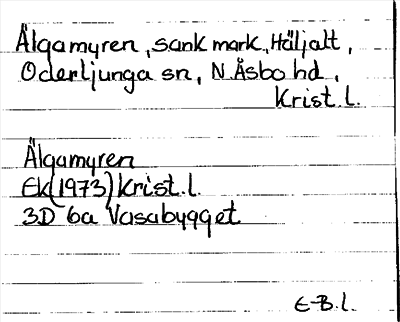 Älgamyren, sank mark, Häljalt,
Oderljunga sn, N Åsbo hd,
Krist. l.
Älgamyren
Ek (1973) Krist. l.
3D 6a Vasabygget
E-B. l.